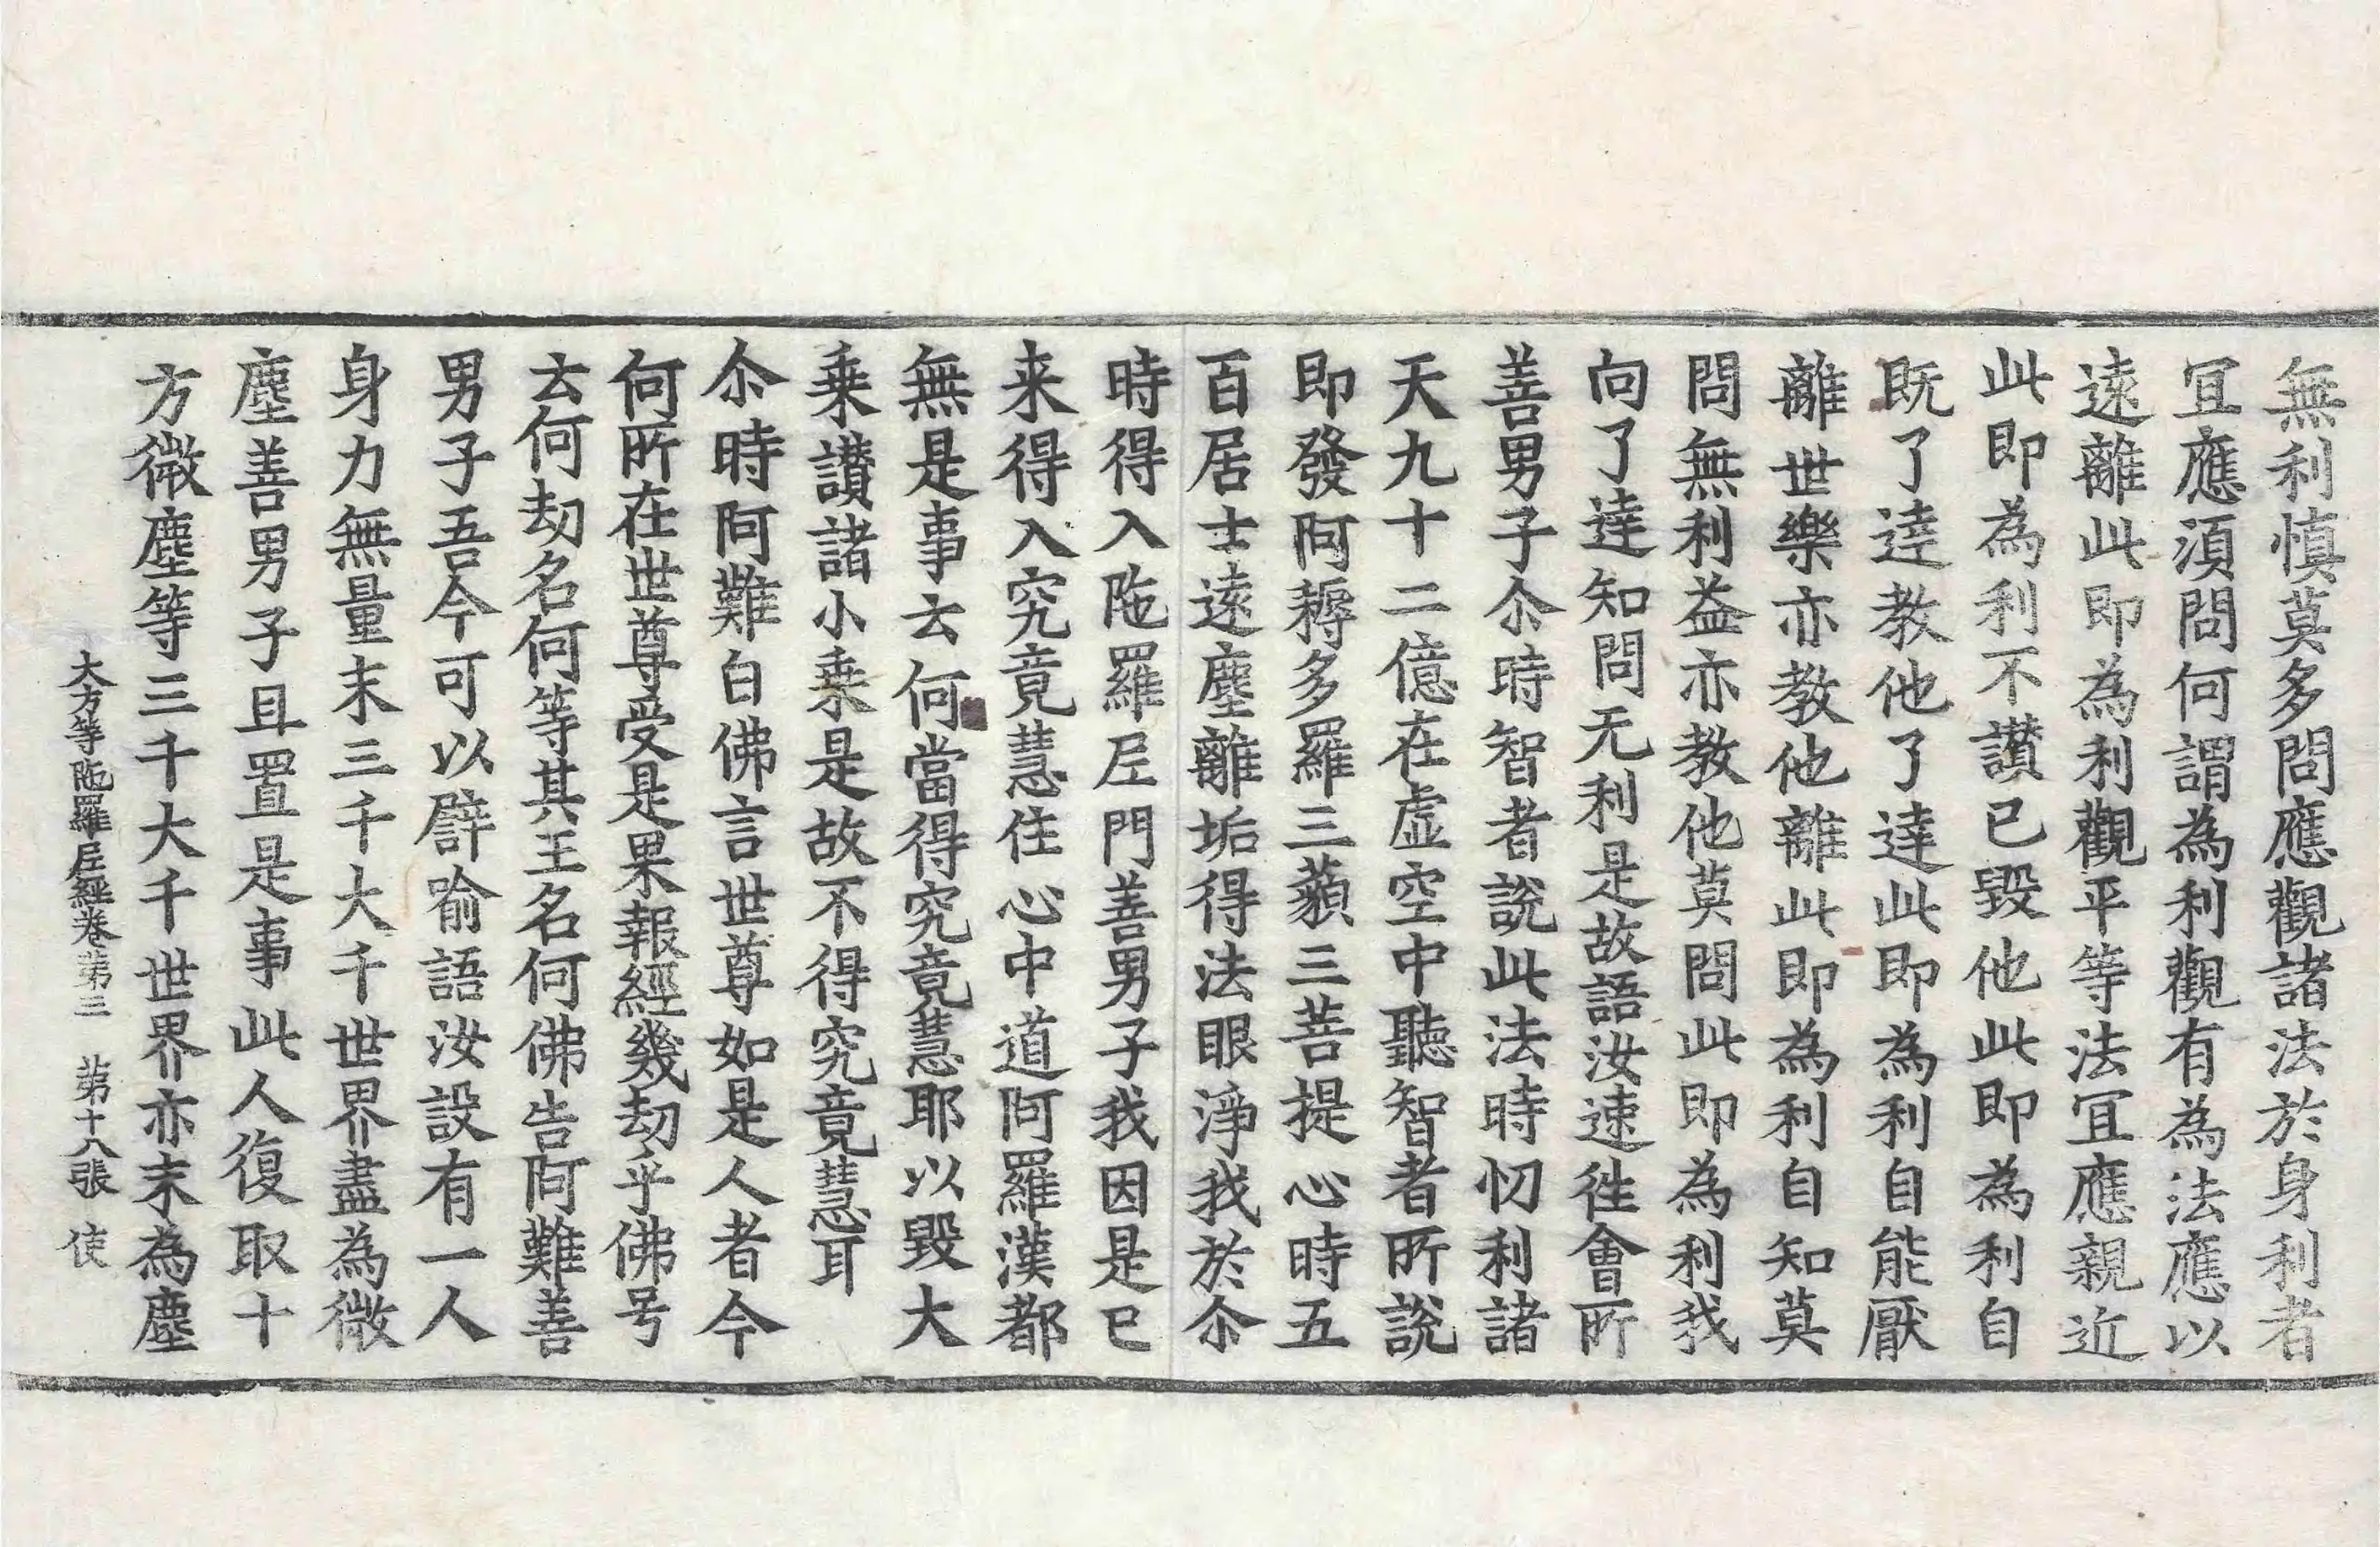 無利慎莫多問應觀諸法於身利者
冝應湏問何謂為利觀有為法應以
遠離此即為利觀平等法冝應親近
此即為利不讃已毀他此即為利自
既了達教他了達此即為利自能厭
離世樂亦教他離此即為利自知莫
問無利益亦教他莫問此即為利我
向了達知問无利是故語汝速徃會所
善男子尒時智者說此法時忉利諸
天九十二億在虛空中聽智者所說
即發阿耨多羅三藐三菩提心時五
百居士遠塵離垢得法眼淨我於尒
時得入陁羅𡰱門善男子我因是已
来得入究竟慧住心中道阿羅漢都
無是事云何當得究竟慧耶以毀大
乗讃諸小乗是故不得究竟慧耳
尒時阿難白佛言世尊如是人者今
何所在世尊受是果報經幾劫乎佛号
云何劫名何等其王名何佛告阿難善
男子吾今可以譬喻語汝設有一人
身力無量末三千大千世界盡為微
塵善男子且置是事此人復取十
方微塵等三千大千世界亦末為塵
大方等陁羅𡰱經卷苐三 苐十八張 使